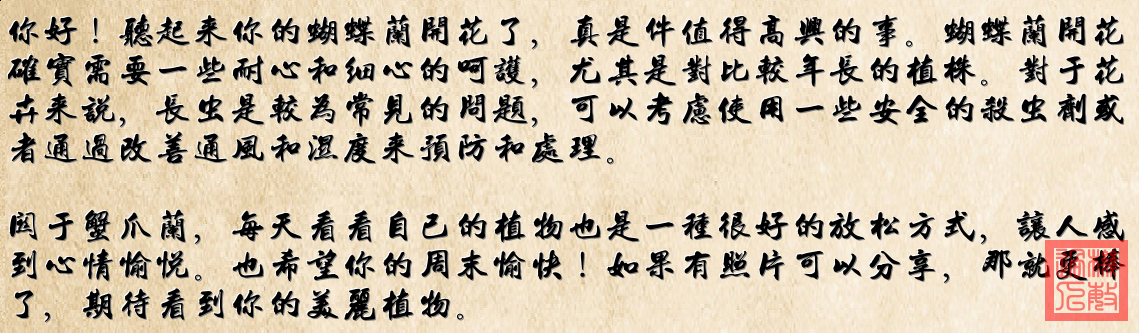 你好！聽起来你的蝴蝶蘭開花了，真是件值得高興的事。蝴蝶蘭開花
確實需要一些耐心和細心的呵護，尤其是對比較年長的植株。對于花
卉来説，長虫是較為常見的問題，可以考慮使用一些安全的殺虫劑或
者通過改善通風和濕度来預防和處理。
関于蟹爪蘭，每天看看自己的植物也是一種很好的放松方式，讓人感
到心情愉悦。也希望你的周末愉快！如果有照片可以分享，那就更棒
了，期待看到你的美麗植物。